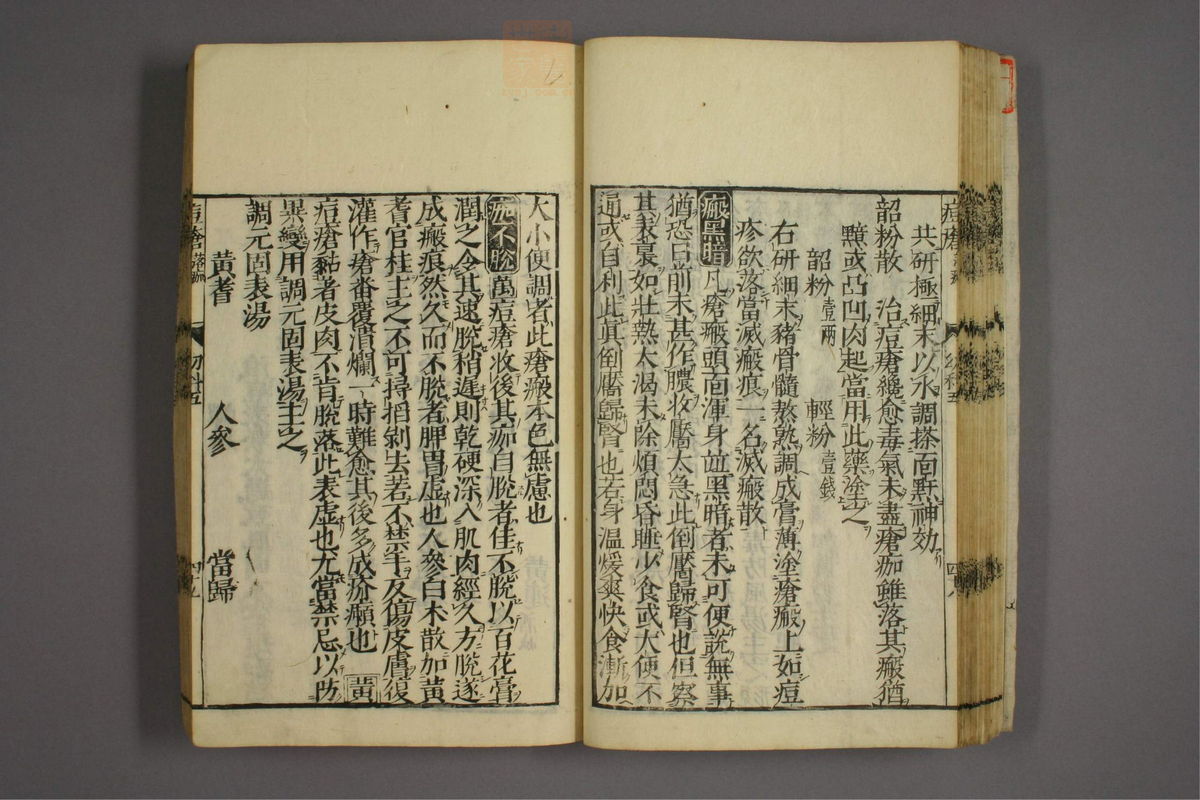 共研極細末以水調搽面㸃神効
韶粉散 治痘瘡纔愈毒氣未盡瘡痂雖落其瘢猶
黯或凸凹肉起當用此藥塗之
韶粉 壹兩 輕粉 壹錢
右研細末豬骨髓熬熟調成膏薄塗瘡瘢上如痘
疹欲落當滅瘢痕一名滅瘢散
瘢黑暗 凡瘡瘢頭面渾身並黑暗者未可便說無事
猶恐日前未甚作膿收靨太急此倒靨歸腎也但察
其表裏如壯熱大渴未除煩悶昏睡少食或大便不
通或自利此眞倒靨歸腎也若身溫煖爽快食漸加
痘瘡
幼科五
大小便調者此瘡瘢本色無慮也
疕不脫 萬痘瘡收後其痂自脫者佳不脫以百花膏
潤之令其速脫稍遲則乾硬深入肌肉經久方脫遂
成瘢痕然久而不脫者脾胃虛也人參白朮散加黃
耆官桂主之不可掃掐剝去若不禁手反傷皮膚復
灌作瘡番覆潰爛一時難愈其後多成疥癩也 黃
痘瘡黏著皮肉不肯脫落此表虛也尤當禁忌以防
異變用調元固表湯主之
調元固表湯
黃耆 人參 當歸
痘瘡
幼科五